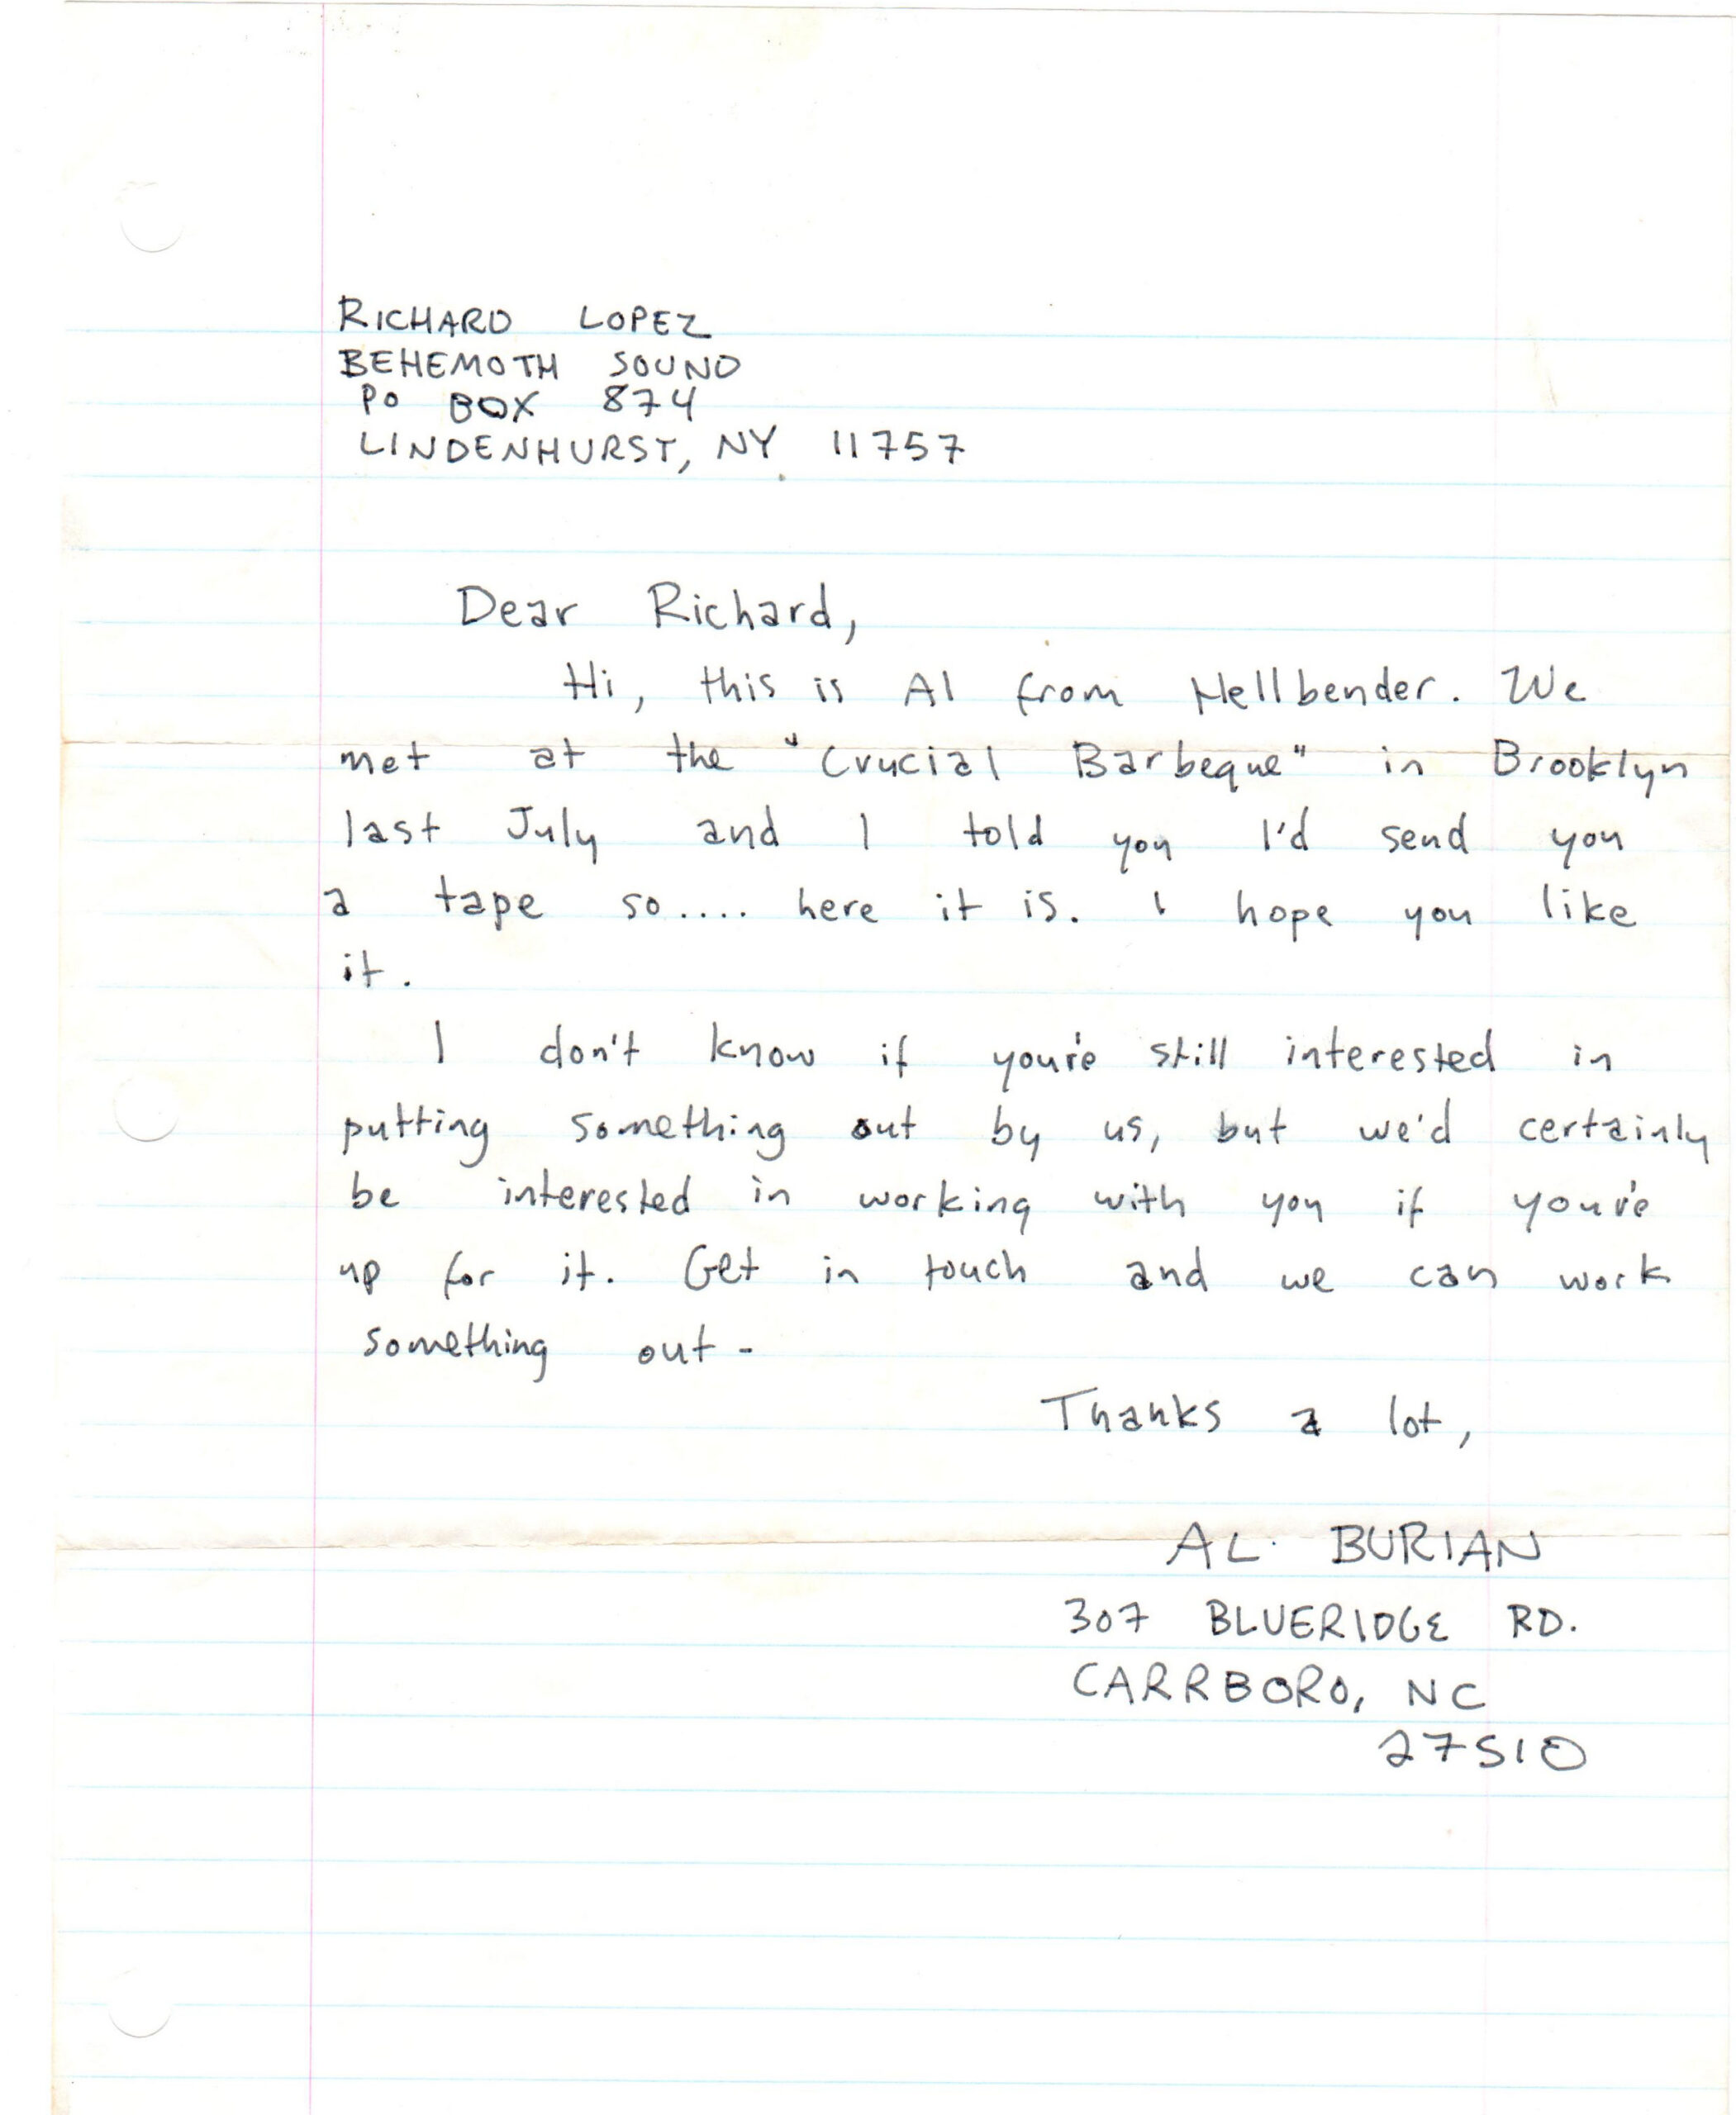 RICHARD LOPEZ
BEHEMOTH SOUND
PO BOX 874
LINDENHURST, NY 11757
Dear Richard,
Hi, this is Al from Hellbender. We
met at the "Crucial Barbeque" in Brooklyn
last July and I told you I'd send you
a tape so.... here it is. I hope you like
it.
I don't know if you're still interested in
putting something out by us, but we'd certainly
be interested in working with you if you're
up for it. Get in touch and we can work
something out-
Thanks a lot,
AL BURIAN
307 BLUERIDGE RD.
CARRBORO, NC
27510